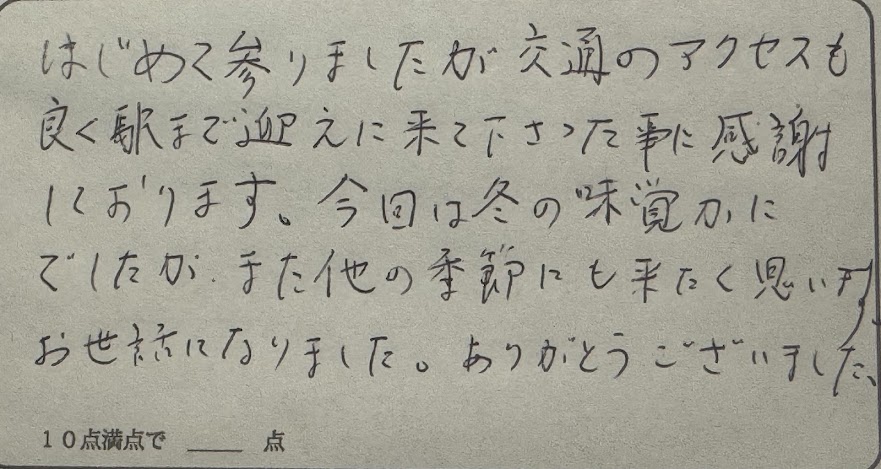 はじめて参りましたが交通のアクセスも
良く駅まで迎えに来て下さった事に感謝
しております。今回は冬の味覚カニ
でしたが、また他の季節にも来たく思います。
お世話になりました。ありがとうございました。
10点満点で ____ 点